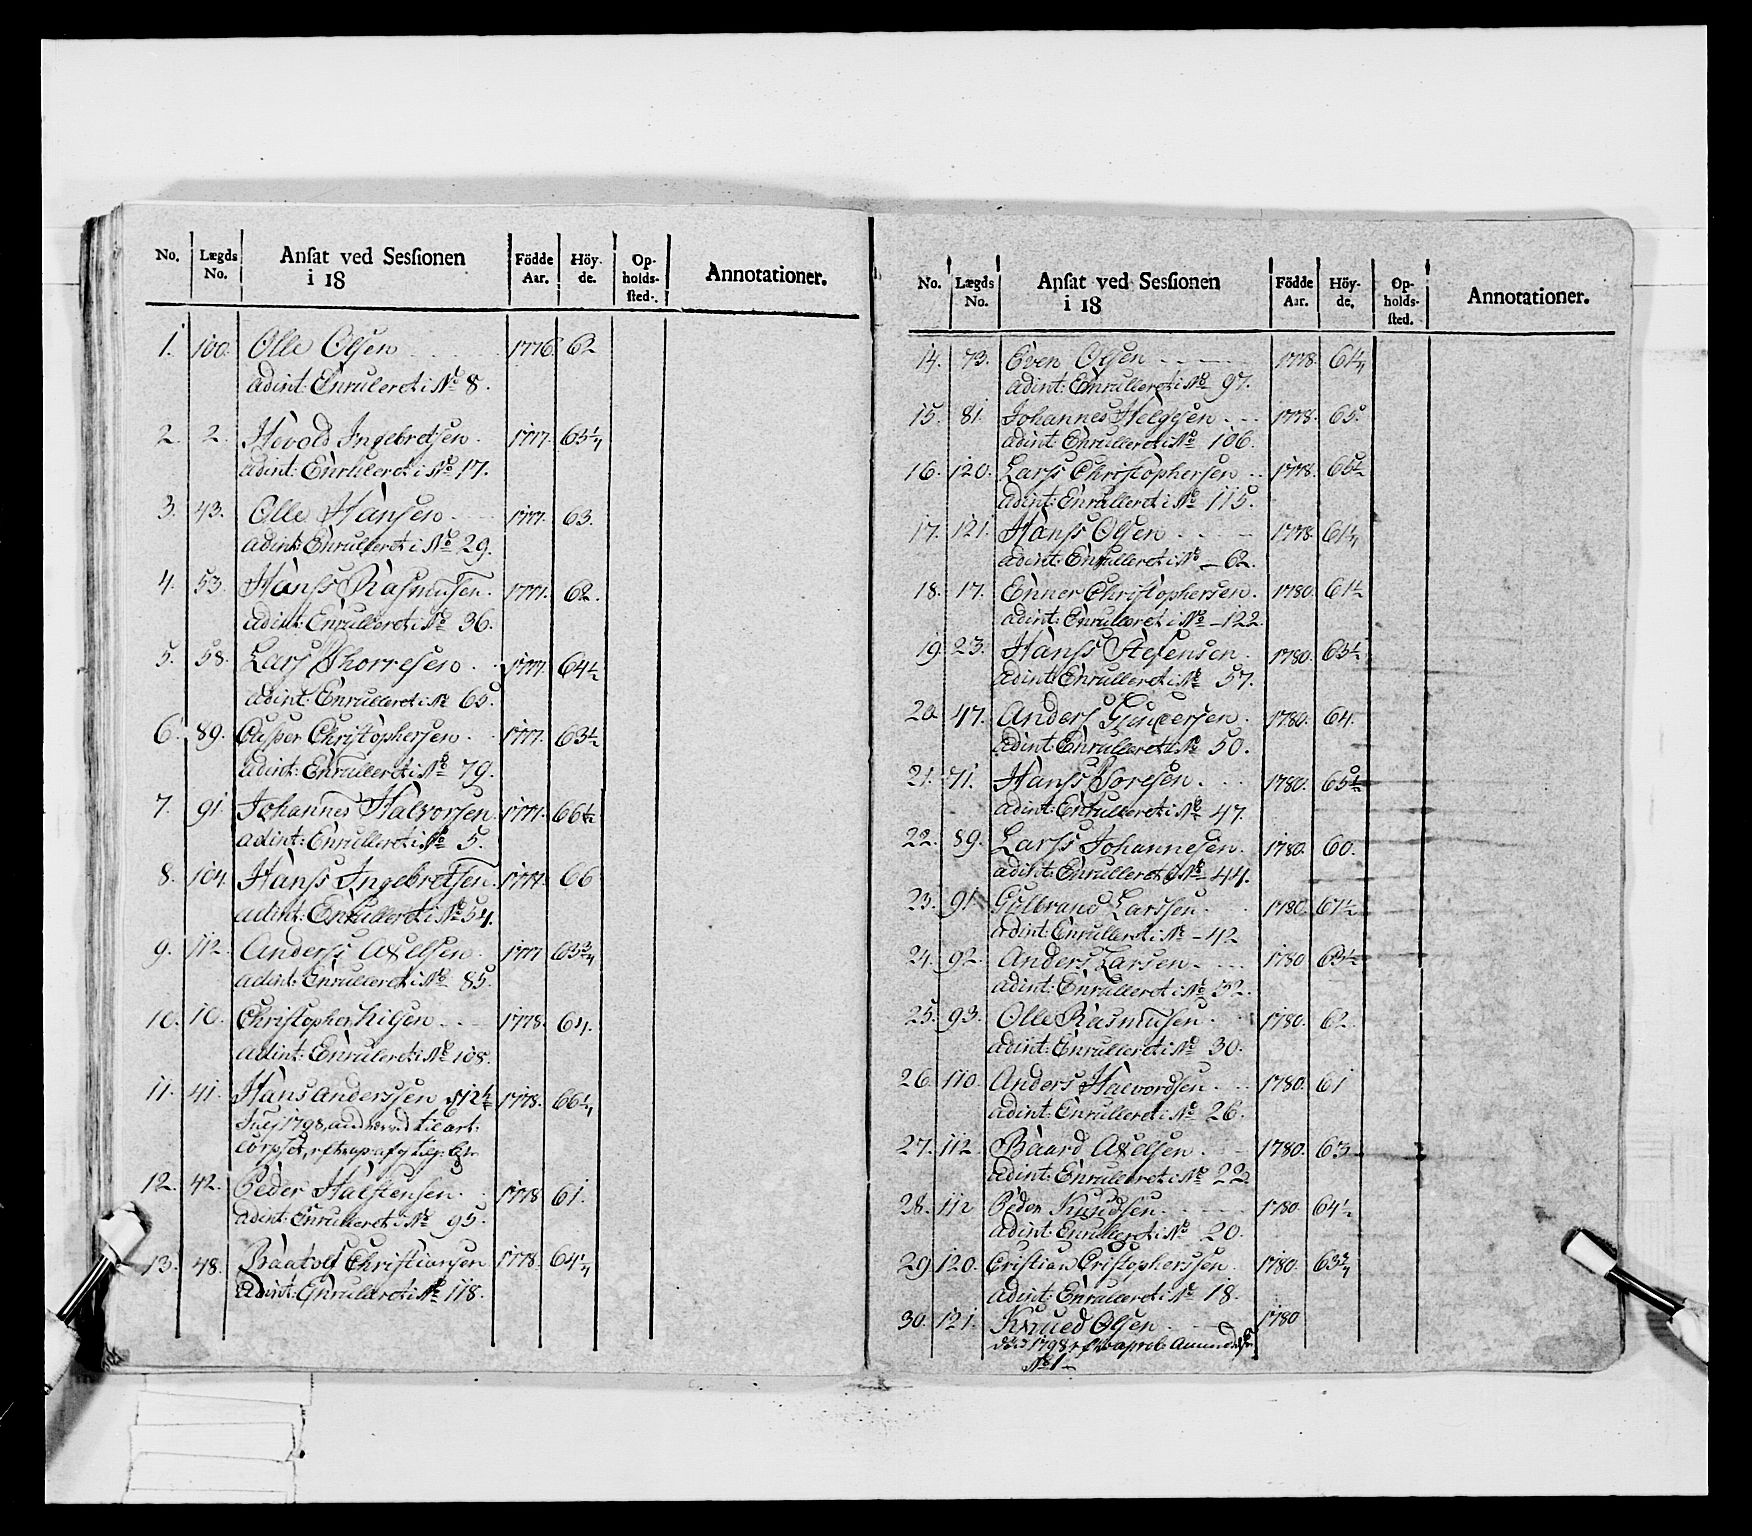 No. Lægds No. Ansat ved Sessionen i 18 Födde Aar. Höyde. Opholdssted. Annotationer.
1. 100. Olle Olsen 1776. 62
adint: Enruleret i No 8.
2. 2. Hevold Ingebretsen. 1777. 63 1/4
adint: Enrulleret i No 17.
3. 43. Olle Hansen 1777. 63.
adint: Enrulleret i No 29.
4. 53. Hanss Rasmusen. 1777. 62.
adint: Enrulleret i No 36.
5. 58. Lars Thorresen. 1777. 64 1/2
adint: Enrulleret i No 65.
6. 89. Casper Christophersen. 1777. 63 1/2
adint: Enrulleret i No 79.
7. 91. Johannes Halvorsen 1777. 66 1/2
adint: Enrulleret i No 5.
8. 104. Hanss Ingebretsen. 1777. 66
adint: Enrulleret i No 54.
9. 112. Anderss Axelsen. 1777 63 3/4
adint: Enrulleret i No 85.
10. 10. Christopher Nilsen 1778. 64.
adint: Enruleret i No 108.
11. 41. Hans Anderssen 1778. 66 1/4
1798, til art:
corpset,
12. 42. Peder Halstensen. 1778 61.
adint: Enrulleret i No 95.
13. 48. Baatolf Christiansen 1778. 64 1/4
adint: Enrulleret i No 118.
No. Lægds No. Ansat ved Sessionen i 18 Födde Aar. Höyde. Opholdssted. Annotationer.
14. 73. Even Olsen 1778. 61 1/4
adint: Enrulleret i No 97.
15. 81. Johannes Helgesen 1778. 65.
adint: Enrulleret i No 106.
16. 120. Larss Christophersen 1778. 66 1/2
adint: Enrulleret i No 115.
17. 121. Hanss Olsen 1778. 61 1/4
adint: Enrulleret i No 62.
18. 17. Enner Christophersen. 1780. 61 1/2
adint: Enrulleret i No 122.
19. 23. Hanss Stefensen. 1780. 63 1/2
adint: Enrulleret i No 57.
20. 47. Anders 1780. 64.
adint: Enrulleret i No 50.
21. 71. Hanss Toresen. 1780. 65 1/2
adint: Enrulleret i No 47.
22. 89. Larss Johannesen. 1780. 60.
adint: Enrulleret i No 44.
23. 91. Gulbrand Larssen. 1780. 67 1/2
adint: Enrulleret i No 42
24. 92. Anders Larsen. 1780 63 1/2
adint: Enrulleret i No 32.
25. 93. Olle Rasmusen. 1780. 62
adint: Enrulleret i No 30.
26. 110. Anders Halvordsen. 1780. 61
adint: Enrulleret i No 26.
27. 112. Baard Axelsen. 1780. 63
adint: Enrulleret i No 22
28. 112 Peder Knudsen. 1780. 64 1/2
adint Enrulleret i No 20.
29. 120. Cristian Cristopherssen. 1780. 63 3/4
adint: Enrulleret i No 18.
30. 121. Knued Olsen 1780
död 1798
No 1